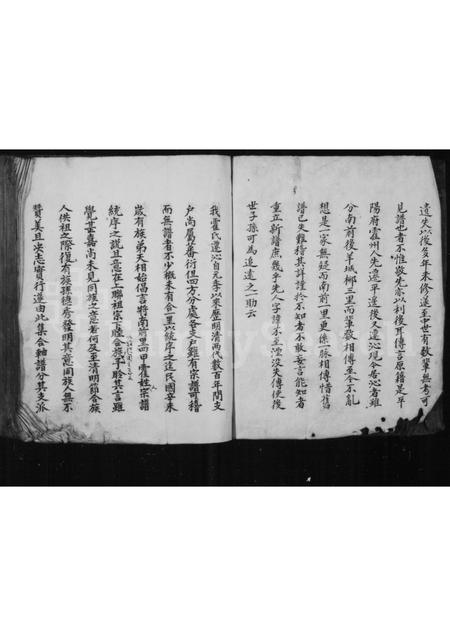 遺失以後多年未修遂至中世有数輩無考可
見譜也者不惟敬先當以利後耳傳言原籍是平
陽府霍州人先遷平遥後又遷沁現今居沁者雖
分南前後羊城郷三里而輩数相傳至今不亂
想是一家無疑而南前一里更係一脉相傳惜舊
譜已失難稽其詳謹於不知者不敢妄言能知者
重立新譜庶幾乎先人字諱不至湮没失傳使後
世子孫可為追遠之一助云
我霍氏遷沁自元季以來歴明清兩代数百年間支
户尚屬蕃衍但四方分處各支户雖有宗譜可稽
而無譜者不少概未有合里以統序之迄民國辛未
歲有族弟天相始倡言將南前里四甲霍姓宗譜
統序之説且意在上聯祖宗下合族予聆其言雖
覺甚嘉尚未見同族之意若何及至清明節合族
人供祖之際復有族孫德脩發明其意同族人無不
贊美且决志實行遂由此集合軸譜分其支派